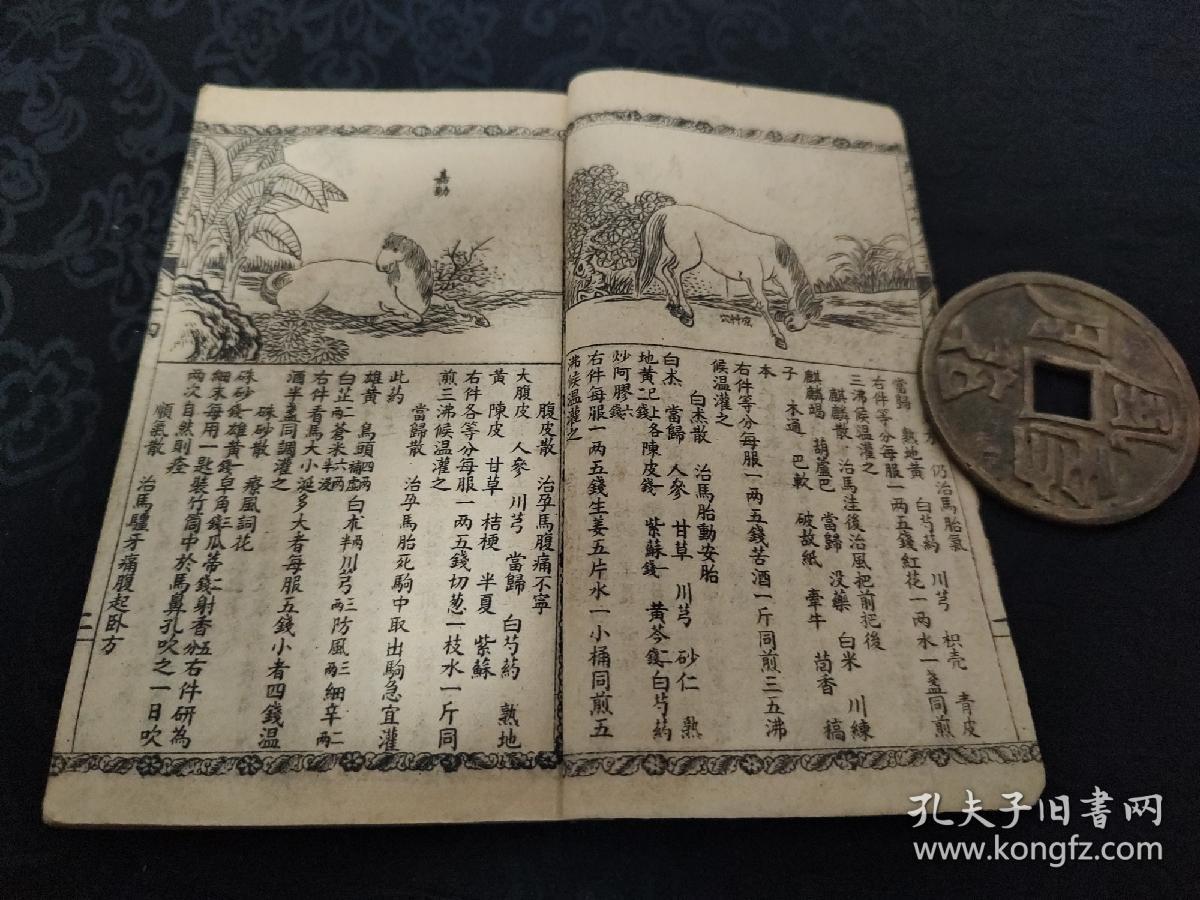 仍治馬胎氣
當歸 熟地黃 白芍藥 川芎 枳壳 青皮
右件等分每服一两五錢紅花一两水一盏同煎
三沸候温灌之
麒麟散 治馬注後治風把前把後
麒麟竭 葫蘆巴 當歸 没藥 白米 川練
子 木通 巴軟 破故紙 牽牛 茴香 稿
本
右件等分每服一两五錢苦酒一斤同煎三五沸
候温灌之
白朮散 治馬胎動安胎
白朮 當歸 人參 甘草 川芎 砂仁 熟
陳皮 紫蘇 黃芩 白芍藥
炒阿膠
右件每服一两五錢生姜五片水一小桶同煎五
沸候温灌之
嘉動
腹皮散 治孕馬腹痛不寧
大腹皮 人參 川芎 當歸 白芍藥 熟地
黃 陳皮 甘草 桔梗 半夏 紫蘇
右件各等分每服一两五錢切葱一枝水一斤同
煎三沸候温灌之
當歸散 治孕馬胎死駒中取出駒急宜灌
此药
雄黃 烏頭四两
右件看馬大小涎多大者每服五錢小者四錢温
酒半盏同調灌之
硃砂散 療風詞花
硃砂一錢雄黃一錢皂角三錢瓜蒂二錢射香五分右件研為
細末每用一匙裝竹筒中於馬鼻孔吹之一日吹
两次自然則痊
順氣散 治馬騹牙痛腹起卧方
二
孔夫子旧书网
www.kongfz.com